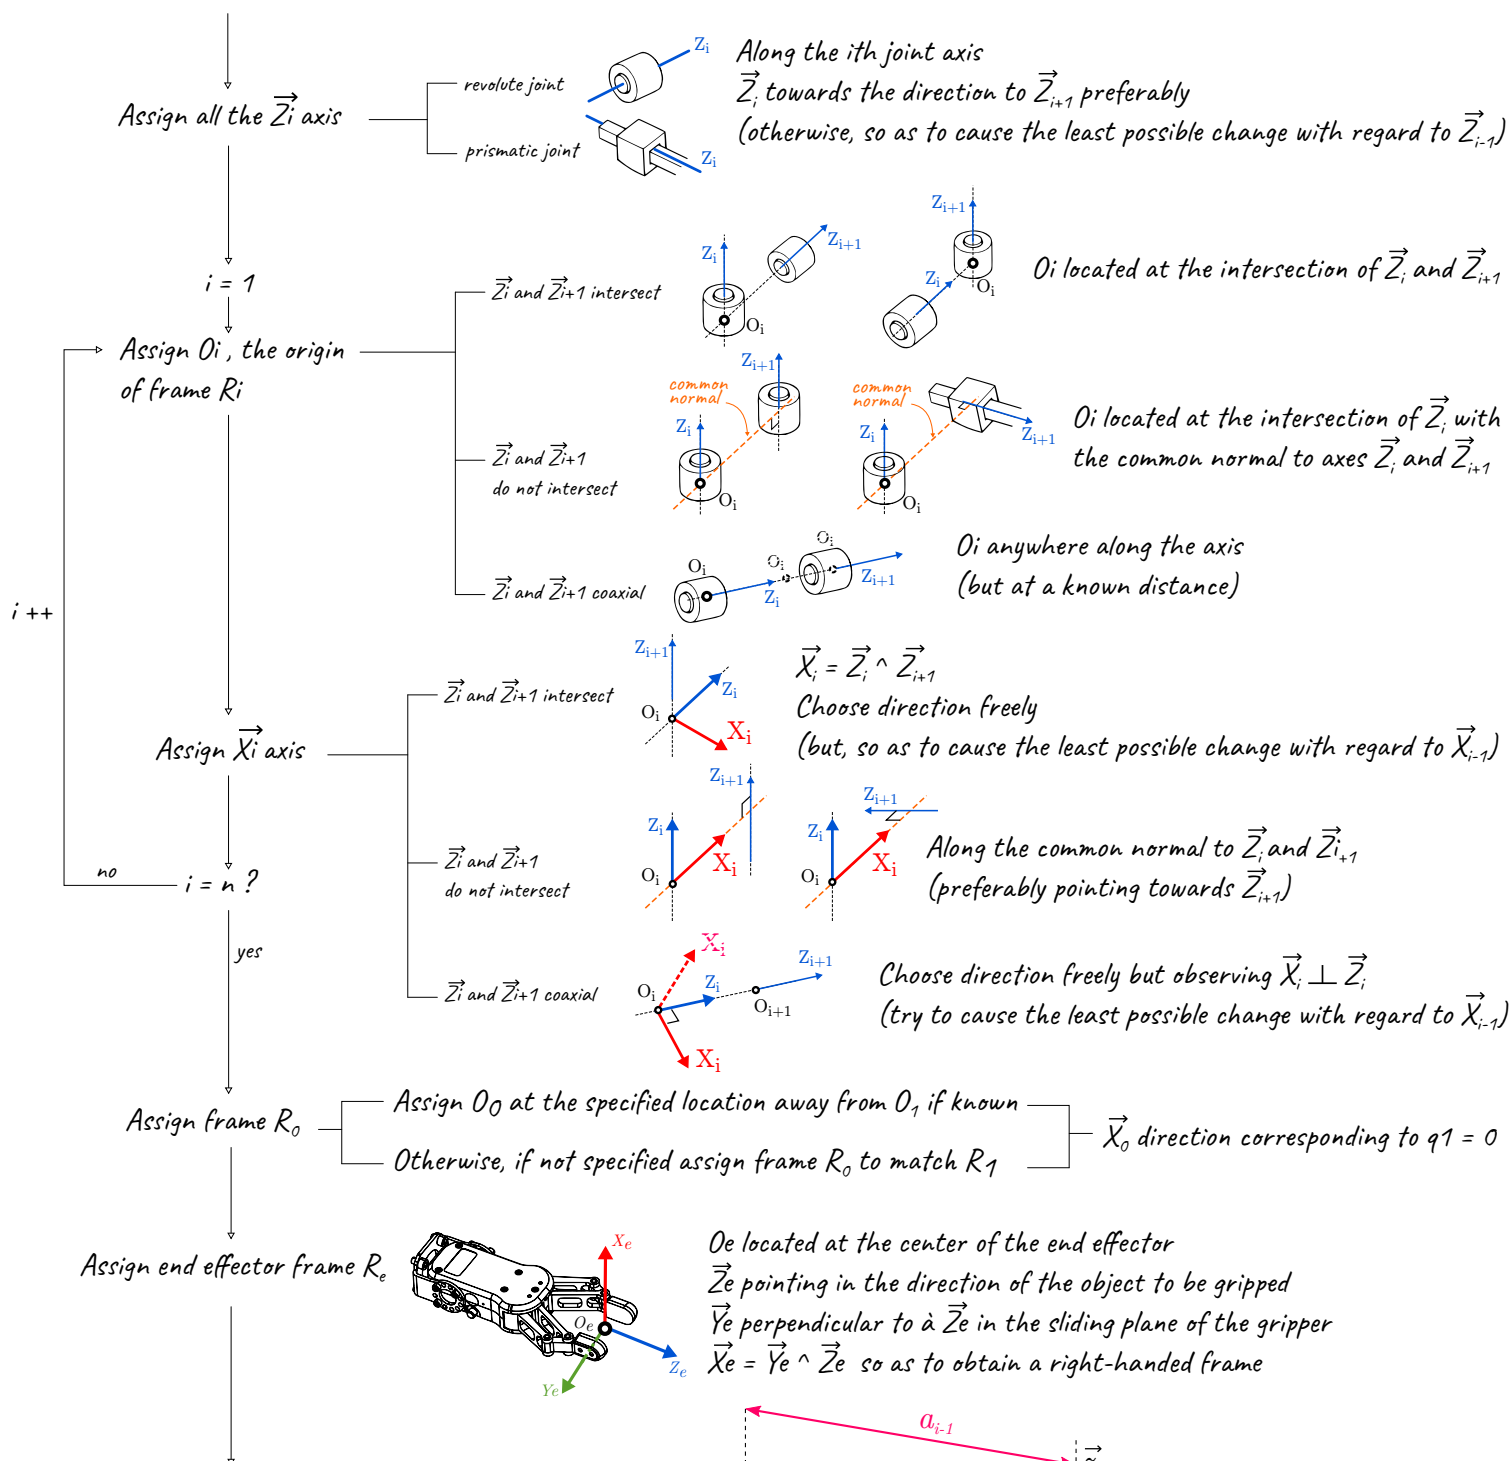 Assign all the Zi axis
revolute joint
prismatic joint
Zi
Zi
Along the ith joint axis
Zi towards the direction to Zi+1 preferably
(otherwise, so as to cause the least possible change with regard to Zi-1)
i = 1
Assign Oi, the origin
of frame Ri
Zi and Zi+1 intersect
Zi
Zi+1
Oi
Zi+1
Zi
Oi
Oi located at the intersection of Zi and Zi+1
Zi and Zi+1
do not intersect
common
normal
Zi+1
Zi
Oi
common
normal
Zi
Zi+1
Oi
Oi located at the intersection of Zi with
the common normal to axes Zi and Zi+1
Zi and Zi+1 coaxial
Oi
Oi
Oi
Zi
Zi+1
Oi anywhere along the axis
(but at a known distance)
i ++
Assign Xi axis
Zi and Zi+1 intersect
Zi+1
Zi
Oi
Xi
Xi = Zi ^ Zi+1
Choose direction freely
(but, so as to cause the least possible change with regard to Xi-1)
Zi and Zi+1
do not intersect
Zi+1
Zi
Xi
Oi
Zi+1
Zi
Xi
Oi
Along the common normal to Zi and Zi+1
(preferably pointing towards Zi+1)
no
i = n ?
yes
Zi and Zi+1 coaxial
Xi
Oi
Zi
Zi+1
Oi+1
Xi
Choose direction freely but observing Xi ⊥ Zi
(try to cause the least possible change with regard to Xi-1)
Assign frame R0
Assign O0 at the specified location away from O1 if known
Otherwise, if not specified assign frame R0 to match R1
X0 direction corresponding to q1 = 0
Assign end effector frame Re
Xe
Oe
Ze
Ye
Oe located at the center of the end effector
Ze pointing in the direction of the object to be gripped
Ye perpendicular to à Ze in the sliding plane of the gripper
Xe = Ye ^ Ze so as to obtain a right-handed frame
ai-1